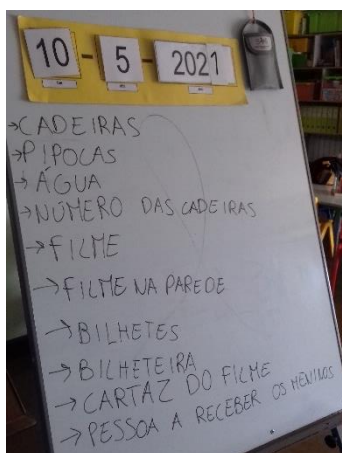 10 - 5 - 2021
→CADEIRAS
→PIPOCAS
→ÁGUA
→NÚMERO DAS CADEIRAS
→FILME
→FILME NA PAREDE
→BILHETES
→BILHETEIRA
→CARTAZ DO FILME
→PESSOA A RECEBER OS MENINOS